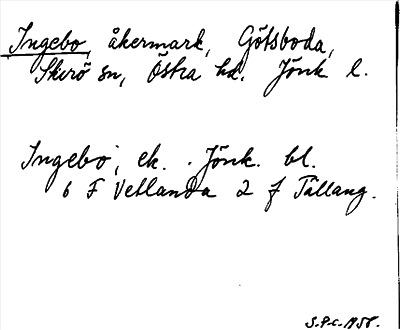 Ingebo, åkermark, Götsboda,
Skirö sn, Östra hd. Jönk l.
Ingebo, ek. Jönk. bl.
6 F Vetlanda 2 f Tällang.
S.P.C. 1958.